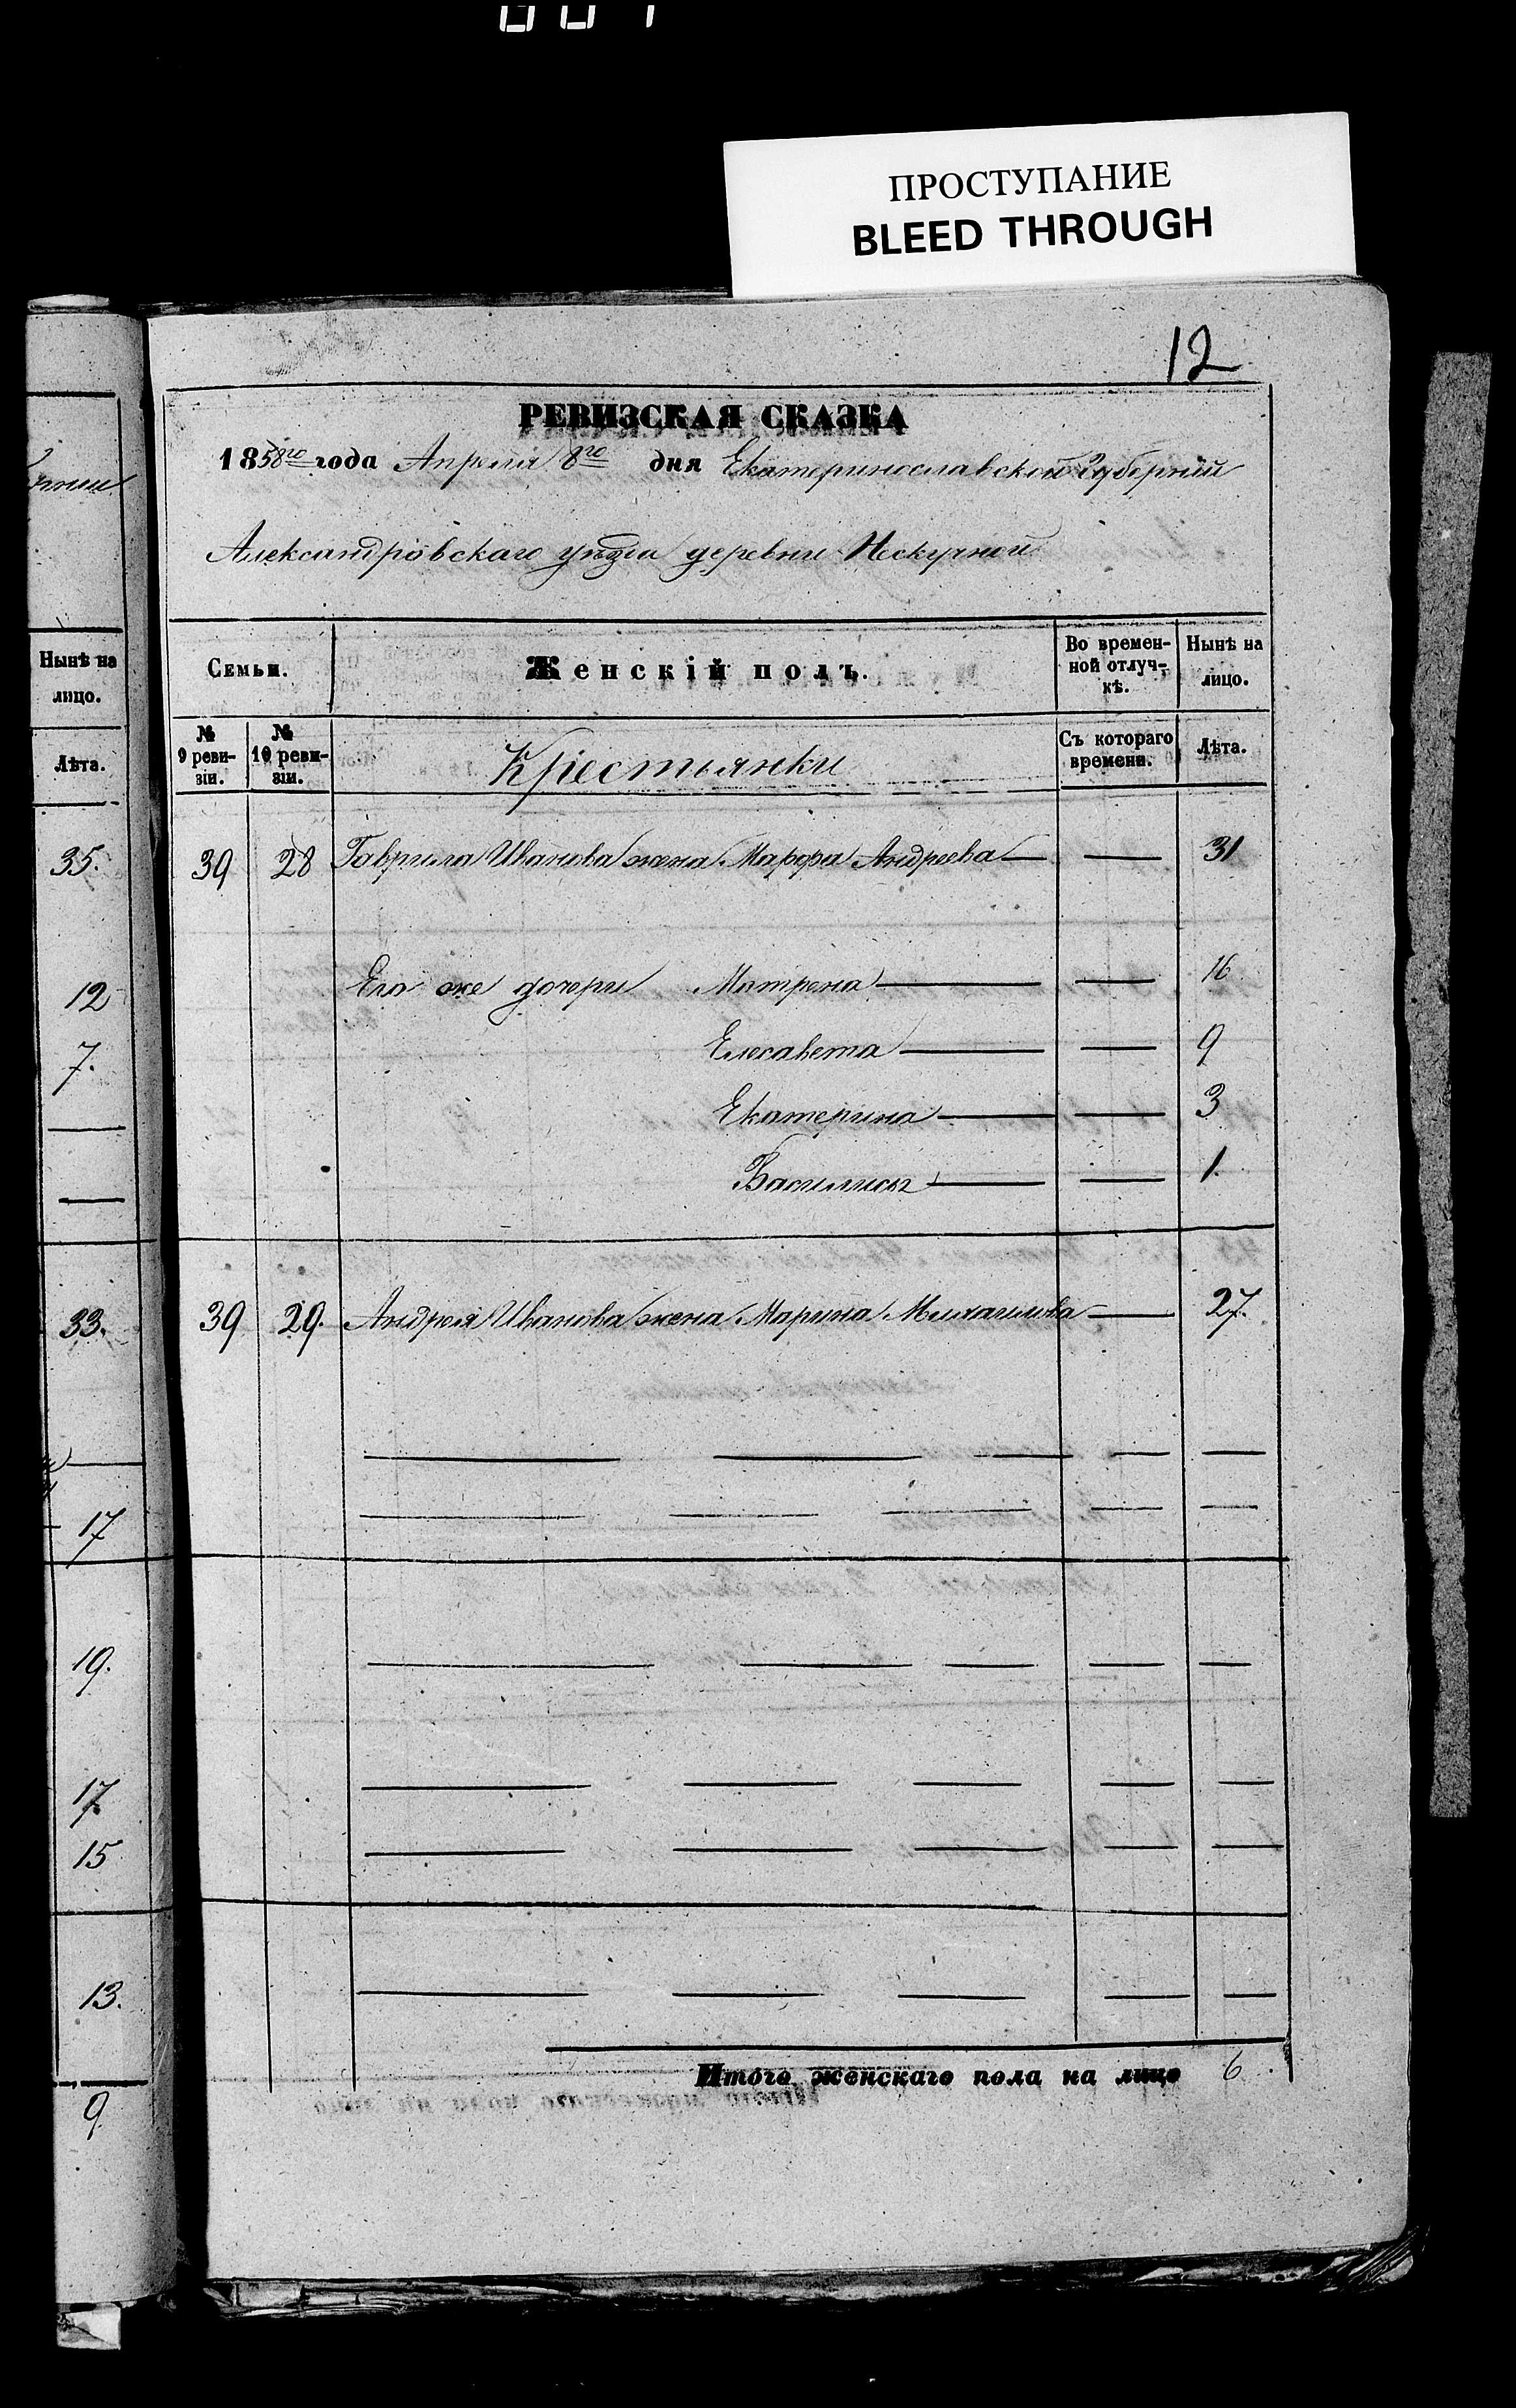 ПРОСТУПАНИЕ
BLEED THROUGH
12
РЕВИЗСКАЯ СКАЗКА
1858го года Апреля 8го дня Екатеринославской Губерніи
Александровскаго уѣзда деревни Нескучной
Нынѣ на лицо.
Лѣта.
35.
12
7.
33.
17
19.
17
15
13.
9
Семьи.
Женскій полъ.
Во времен-
ной отлуч-
кѣ.
Нынѣ на
лицо.
№
9 реви-
зіи.
№
10 реви-
зіи.
Крестьянки
Съ котораго
времени.
Лѣта.
39 28 Гаврила Иванова жена Марфа Андреева 31
Его же дочери Матрена 16
Елесавета 9
Екатерина 3
Василиса 1.
39 29. Андрея Иванова жена Марина Михайлова 27.
Итого женскаго пола на лицо 6